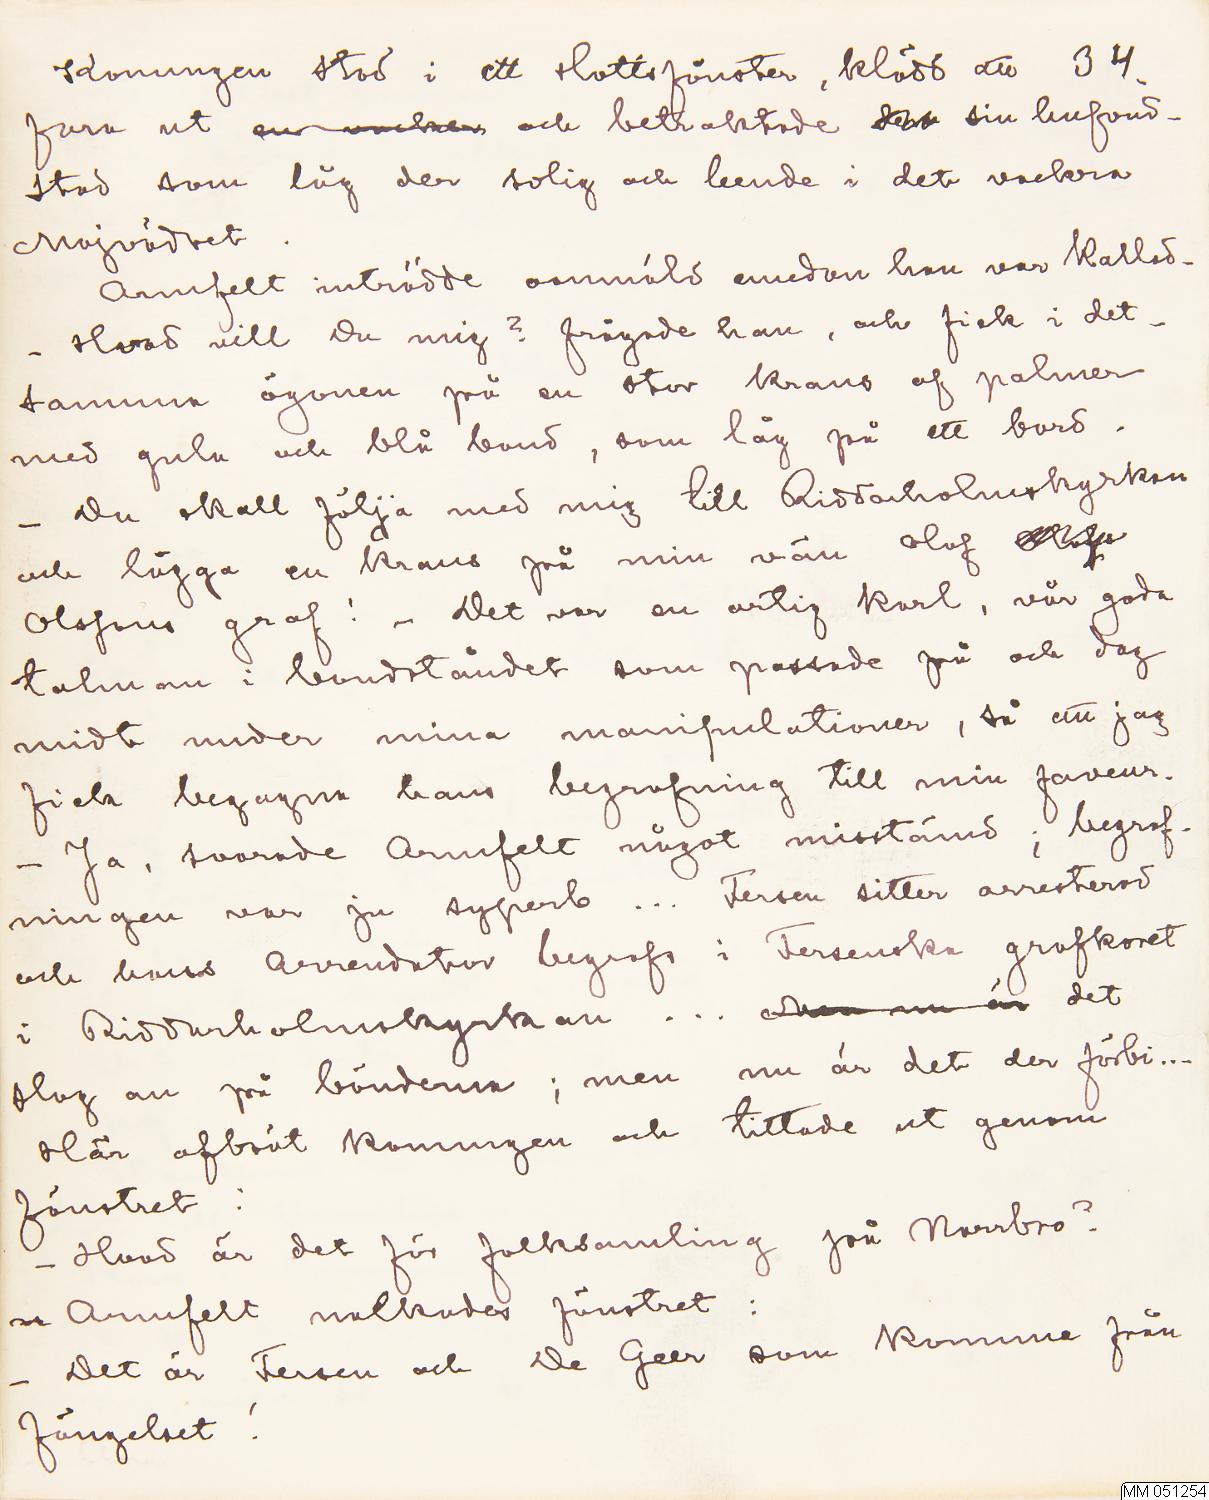 Konungen stod i ett slottsfönster, klädd att 34.
fara ut en vacker och betraktade den sin hufvud-
stad som låg der solig och leende i det vackra
Majvädret.
Armfelt inträdde oanmäld emedan han var kallad.
– Hvad vill Du mig? frågade han, och fick i det-
samma ögonen på en stor krans af palmer
med gula och blå band, som låg på ett bord.
– Du skall följa med mig till Riddarholmskyrkan
och lägga en krans på min vän Olof
Olssons graf! – Det var en artig karl, vår goda
talman i bondståndet som passade på och dog
midt under mina manipulationer, så att jag
fick begagna hans begrafning till min faveur.
– Ja, svarade Armfelt något misstämd; begraf-
ningen var ju syperb ... Fersen sitter arresterad
och hans Arrendator begrafs i Fersenska grafkoret
i Riddarholmskyrkan ... men nu är det
slog an på bönderna; men nu är det der förbi...
Här afbröt konungen och tittade ut genom
fönstret:
– Hvad är det för folksamling på Norrbro?
Armfelt nalkades fönstret:
– Det är Fersen och De Geer som komma från
fängelset!
MM 051254